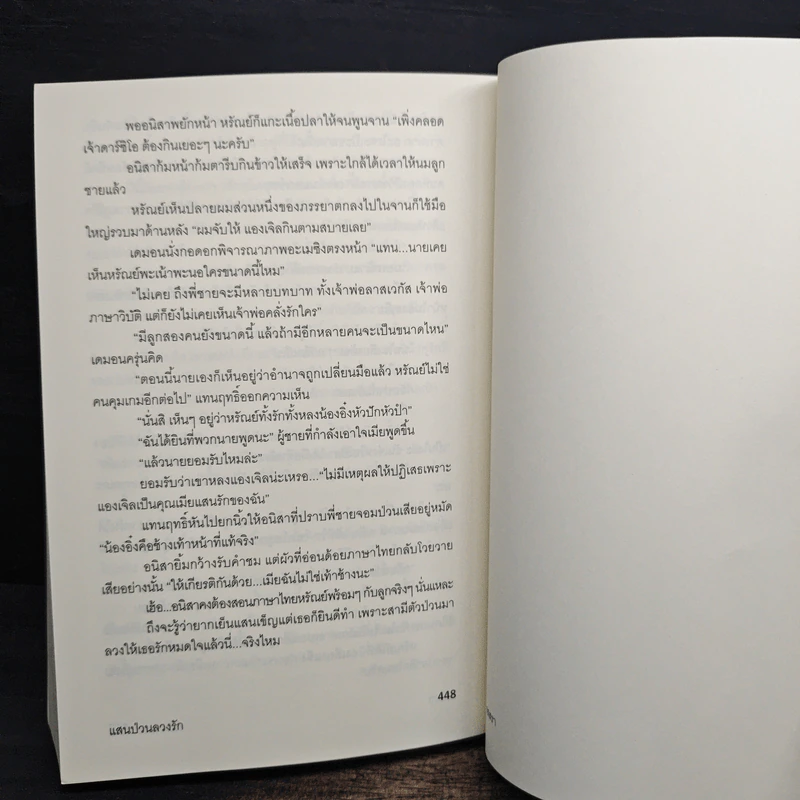 พออนิสาพยักหน้า หรัณย์ก็แกะเนื้อปลาให้จนพูนจาน “เพิ่งคลอด
เจ้าดาร์ซิโอ ต้องกินเยอะๆ นะครับ”
อนิสาก้มหน้าก้มตารีบกินข้าวให้เสร็จ เพราะใกล้ได้เวลาให้นมลูก
ชายแล้ว
หรัณย์เห็นปลายผมส่วนหนึ่งของภรรยาตกลงไปในจานก็ใช้มือ
ใหญ่รวบมาด้านหลัง “ผมจับให้ แองเจิลกินตามสบายเลย”
เดมอนนั่งกอดอกพิจารณาภาพอะเมซิงตรงหน้า “แทน...นายเคย
เห็นหรัณย์พะเน้าพะนอใครขนาดนี้ไหม”
“ไม่เคย ถึงพี่ชายจะมีหลายบทบาท ทั้งเจ้าพ่อลาสเวกัส เจ้าพ่อ
ภาษาวิบัติ แต่ก็ยังไม่เคยเห็นเจ้าพ่อคลั่งรักใคร”
“มีลูกสองคนยังขนาดนี้ แล้วถ้ามีอีกหลายคนจะเป็นขนาดไหน”
เดมอนครุ่นคิด
“ตอนนี้นายเองก็เห็นอยู่ว่าอำนาจถูกเปลี่ยนมือแล้ว หรัณย์ไม่ใช่
คนคุมเกมอีกต่อไป” แทนฤทธิ์ออกความเห็น
“นั่นสิ เห็นๆ อยู่ว่าหรัณย์ทั้งรักทั้งหลงน้องอิ๋งหัวปักหัวป๋า”
“ฉันได้ยินที่พวกนายพูดนะ” ผู้ชายที่กำลังเอาใจเมียพูดขึ้น
“แล้วนายยอมรับไหมล่ะ”
ยอมรับว่าเขาหลงแองเจิลน่ะเหรอ...“ไม่มีเหตุผลให้ปฏิเสธเพราะ
แองเจิลเป็นคุณเมียแสนรักของฉัน”
แทนฤทธิ์หันไปยกนิ้วให้อนิสาที่ปราบพี่ชายจอมป่วนเสียอยู่หมัด
“น้องอิ๋งคือช้างเท้าหน้าที่แท้จริง”
อนิสายิ้มกว้างรับคำชม แต่ผัวที่อ่อนด้อยภาษาไทยกลับโวยวาย
เสียอย่างนั้น “ให้เกียรติกันด้วย...เมียฉันไม่ใช่เท้าช้างนะ”
เฮ้อ...อนิสาคงต้องสอนภาษาไทยหรัณย์พร้อมๆ กับลูกจริงๆ นั่นแหละ
ถึงจะรู้ว่ายากเย็นแสนเข็ญแต่เธอก็ยินดีทำ เพราะสามีตัวป่วนมา
ลวงให้เธอรักหมดใจแล้วนี่...จริงไหม
448
แสนป่วนลวงรัก